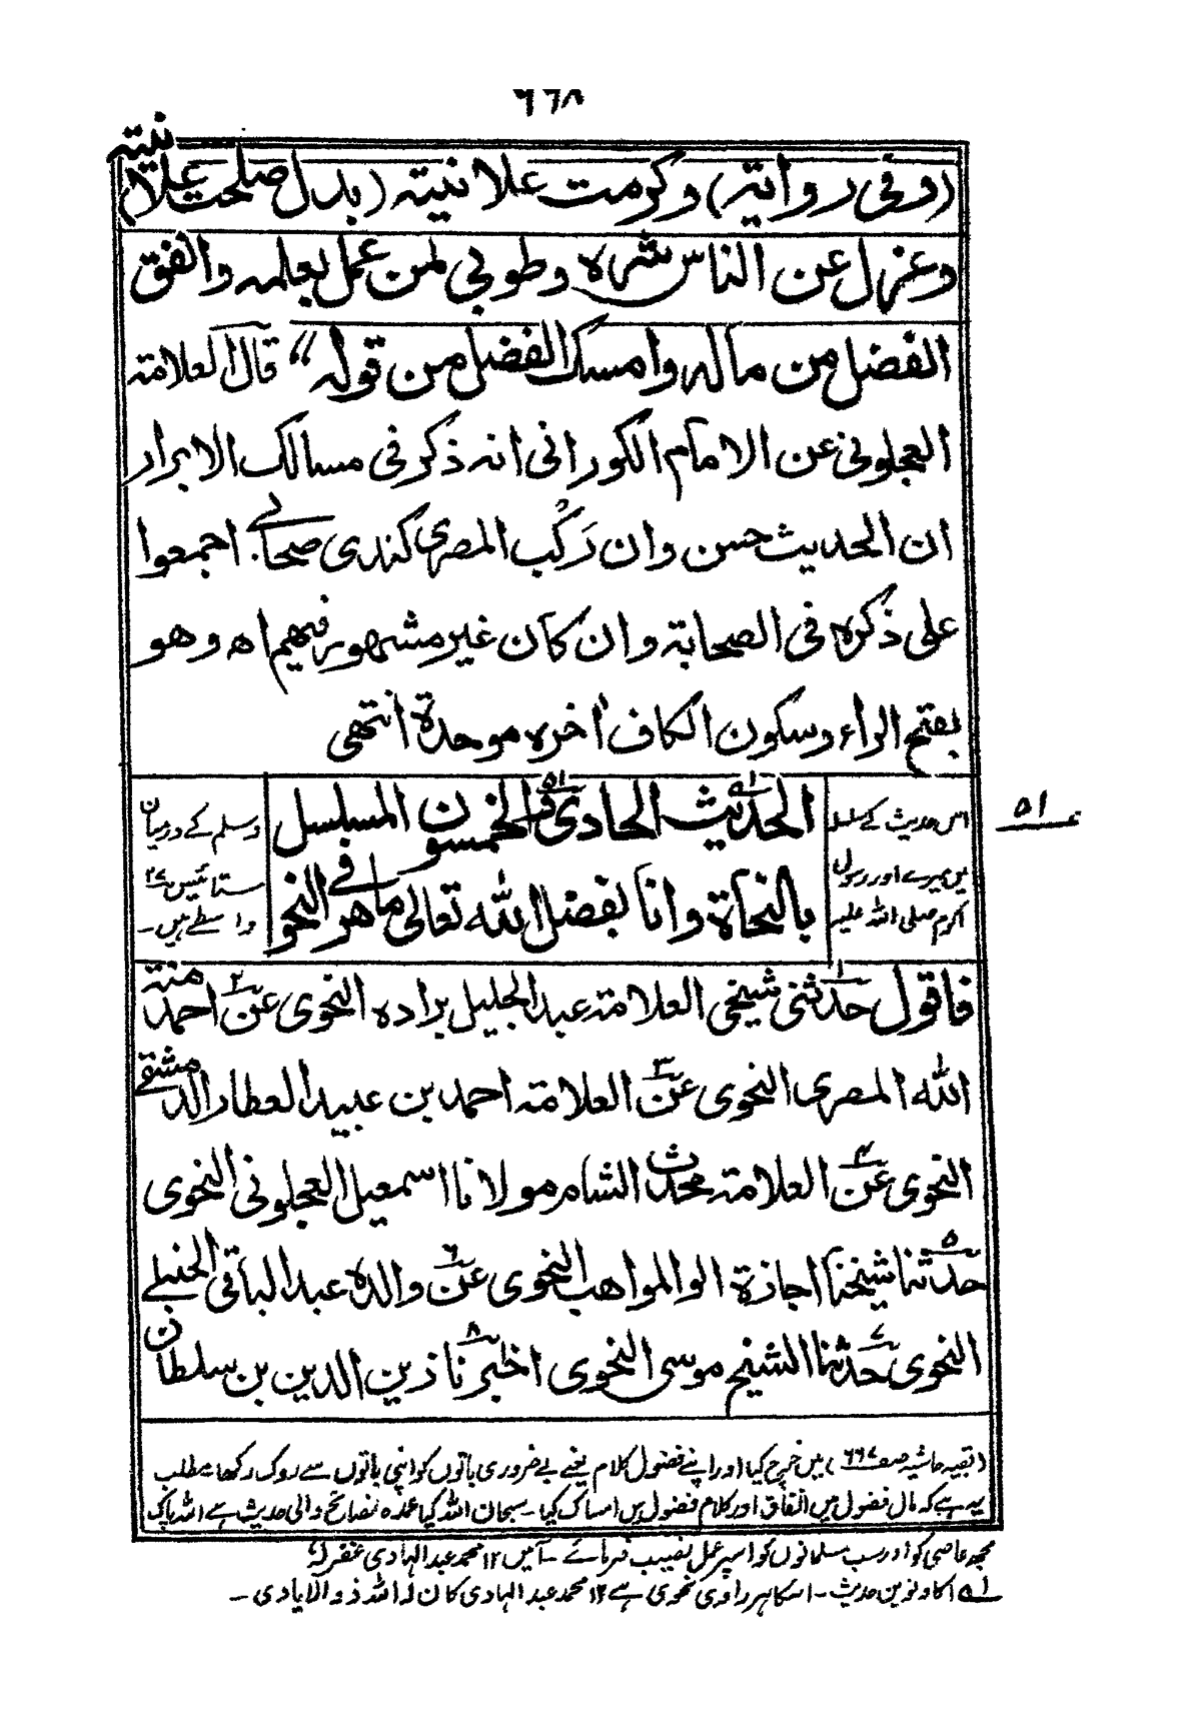 ٦٦٨
(وفی روایۃ) وکرمت علانیتہ (بدل صلحت علانیتہ)
وعزل عن الناس شرہ وطوبی لمن عمل بعلمہ وانفق
الفضل من مالہ وامسک الفضل من قولہ" قال العلامۃ
العجلونی عن الامام الکورانی انہ ذکر فی مسالک الابرار
ان الحدیث حسن وان رَکْب المصری کندی صحابی اجمعوا
علی ذکرہ فی الصحابۃ وان کان غیر مشہور فیہم اھ وھو
بفتح الراء وسکون الکاف اخرہ موحدۃ انتھی
الحدیث الحادی والخمسون المسلسل
بالنحاۃ وانا بفضل اللہ تعالی ماھر فی النحو
۵۱
اس حدیث کے سلسلہ
میں میرے اور رسول
اکرم صلی اللہ علیہ
وسلم کے درمیان
ستائیس ۲۷
واسطے ہیں۔
فاقول حدثنی شیخی العلامۃ عبد الجلیل برادہ النحوی عن احمد منۃ
اللہ المصری النحوی عن العلامۃ احمد بن عبید العطار الدمشقی
النحوی عن العلامۃ محدث الشام مولانا اسمعیل العجلونی النحوی
حدثنا شیخنا اجازۃ ابو المواھب النحوی عن والدہ عبد الباقی الحنبلی
النحوی حدثنا الشیخ موسی النحوی اخبرنا زین الدین بن سلطان
(بقیہ حاشیہ صفحہ ۶۶۷) میں خرچ کیا اور اپنے فضول کلام یعنی بے ضروری باتوں کو اپنی باتوں سے روک رکھا مطلب
یہ ہے کہ مال فضول میں انفاق اور کلام فضول میں امساک کیا۔ سبحان اللہ کیا عمدہ نصائح والی حدیث ہے اللہ پاک
مجھ عاصی کو اور سب مسلمانوں کو اسپر عمل نصیب فرمائے۔ آمین ۱۲ محمد عبد الہادی غفرلہ
لہ اکاونویں حدیث۔ اسکا ہر راوی نحوی ہے ۱۲ محمد عبد الہادی کان لہ اللہ ذو الایادی۔